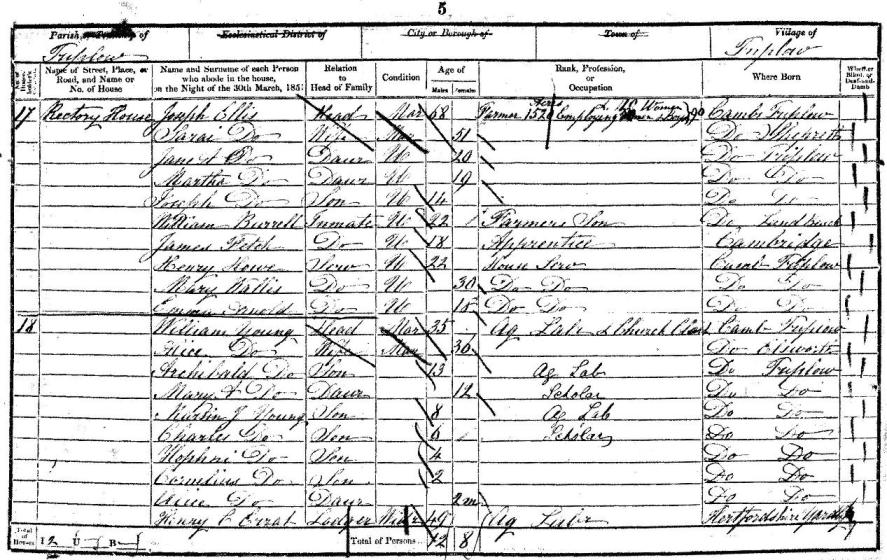 5
Parish or Township of Ecclesiastical District of City or Borough of Town of Village of
Triplow Triplow
Name of Street, Place, or Road, and Name or No. of House
Name and Surname of each Person who abode in the house, on the Night of the 30th March, 1851
Relation to Head of Family
Condition
Age of
Males Females
Rank, Profession, or Occupation
Where Born
Whether Blind, or Deaf-and-Dumb
17 Rectory House Joseph Ellis Head Mar 68 Farmer 1520 Acres Employing Women & Boys 90 Cambs Triplow
Sarai Do Wife Mar 51 Do
Do Daur U 20 Do Triplow
Martha Do Daur U 19 Do Do
Joseph Do Son U 14 Do Do
William Burrell Inmate U 22 Farmers Son Do Landbeach
James Fetch Do U 18 Apprentice Cambridge
Henry Howe Serv U 22 Serv Camb Triplow
Mary Wallis Do U 30 Do Do Do Do
Emma Arnold Do U 18 Do Do Do Do
18 William Young Head Mar 35 Ag Lab & Church Camb Triplow
Alice Do Wife Mar 36 Do Elsworth
Archibald Do Son 13 Ag Lab Do Triplow
Mary Do Daur 12 Scholar Do Do
J Young Son 8 Ag Lab Do Do
Charles Do Son 6 Scholar Do Do
Hophni Do Son 4 Do Do
Cornelius Do Son 2 Do Do
Alice Do Daur 2m Do Do
Henry C Lodger Widr 49 Ag Hertfordshire
Total of Houses I 2 U B Total of Persons 12 8